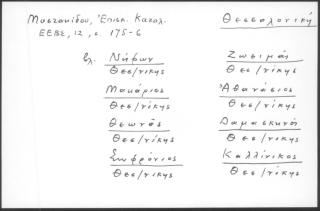 Μυστακίδου, Ἐπισκ. Καταλ.
Θεσσαλονίκη
ΕΕΒΣ, 12, σ. 175-6
Βλ. Νήφων
Θες/νίκης
Ζωσιμάς
Θες/νίκης
Μακάριος
Θες/νίκης
Ἀθανάσιος
Θες/νίκης
Θεωνάς
Θες/νίκης
Δαμασκηνός
Θες/νίκης
Σωφρόνιος
Θες/νίκης
Καλλίνικος
Θες/νίκης